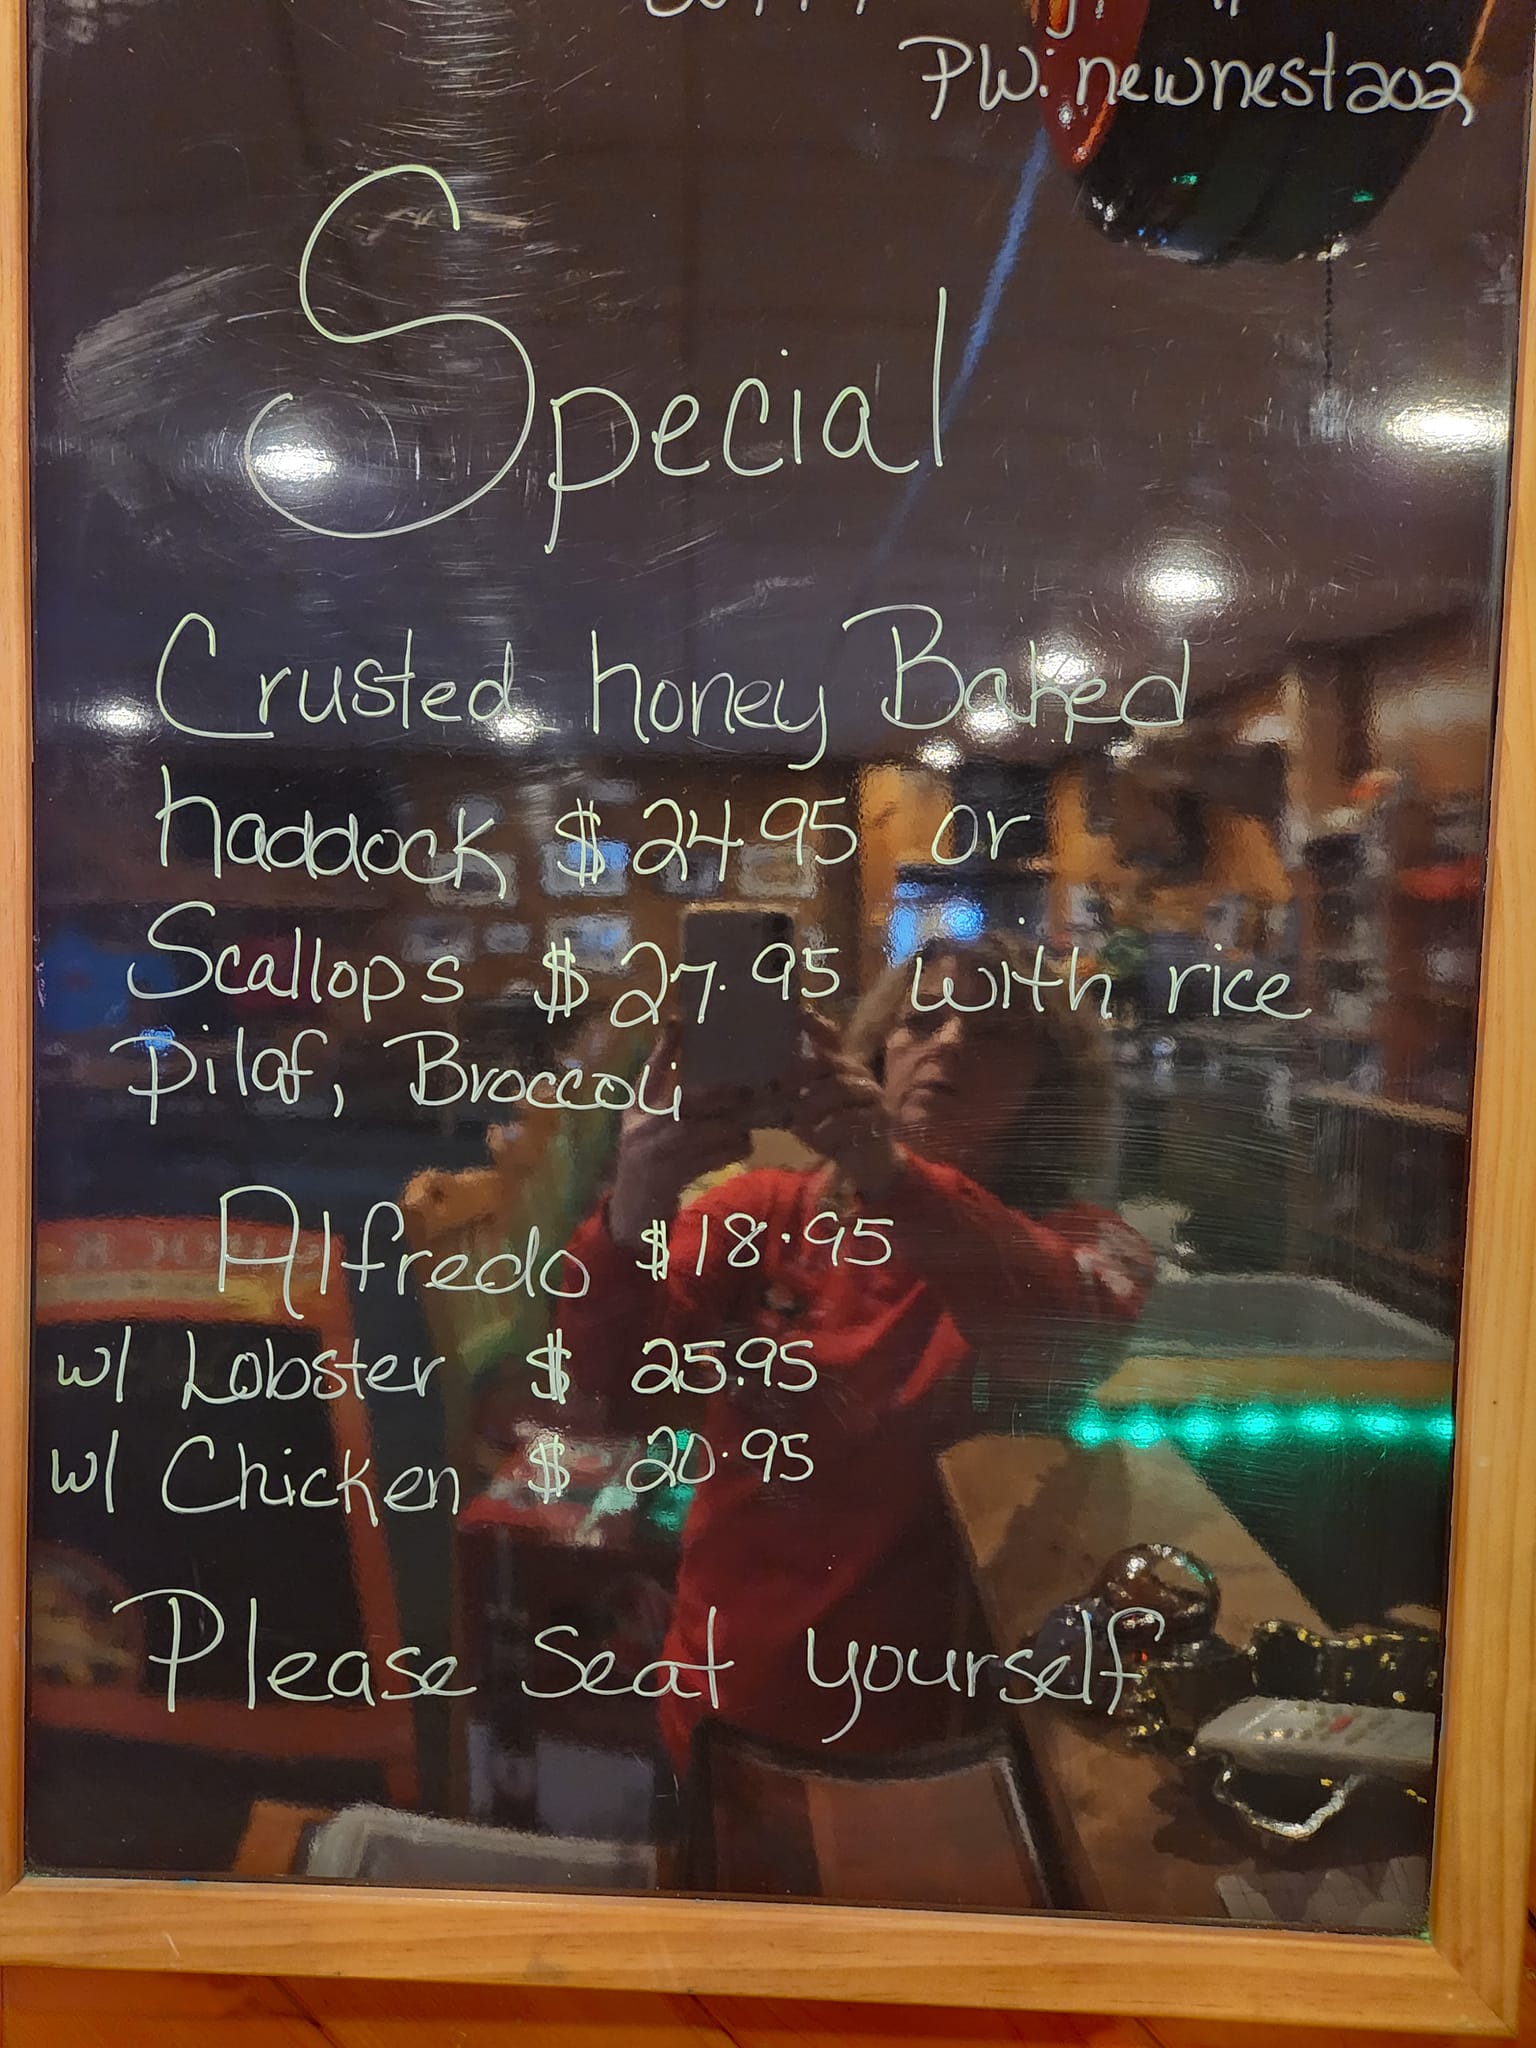 PW: newnest202
Special
Crusted honey Baked
haddock $24.95 or
Scallops $27.95 with rice
pilaf, Broccoli
Alfredo $18.95
w/ Lobster $ 25.95
w/ Chicken $ 20.95
Please Seat yourself